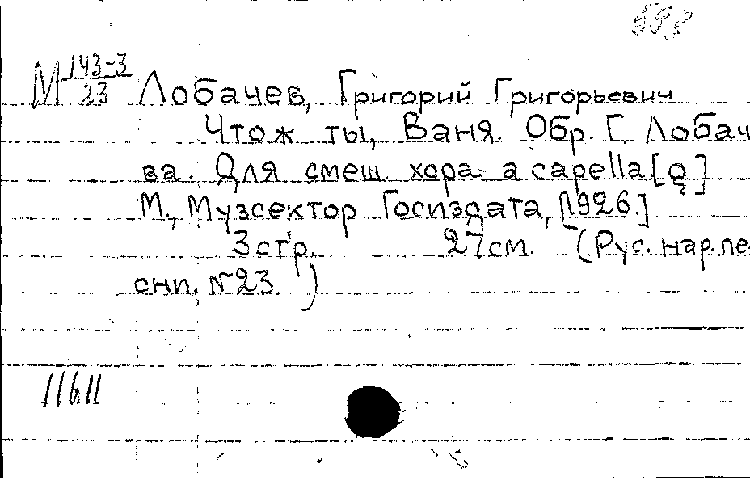 М 143-3/23 Лобачев, Григорий Григорьевич
Чтож ты, Ваня. Обр. Г. Лобач
ва. Для смеш. хора a capella [o]
М., Музсектор Госиздата, [1926.]
3 стр. 27 см. (Рус. нар. пе
сни. №23.)
11611